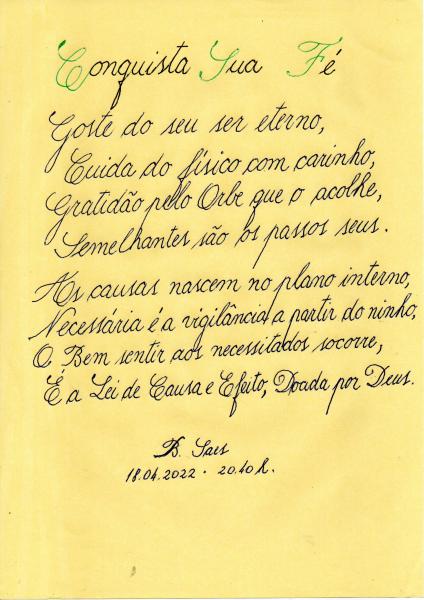 Conquista Sua Fé
Goste do seu ser eterno,
Cuida do físico com carinho,
Gratidão pelo Orbe que o acolhe,
Semelhantes são os passos seus.
As causas nascem no plano interno,
Necessária é a vigilância a partir do ninho,
O Bem sentir aos necessitados socorre,
É a Lei de Causa e Efeito, Doada por Deus.
B. Saes
18.04.2022 . 20.40 h.